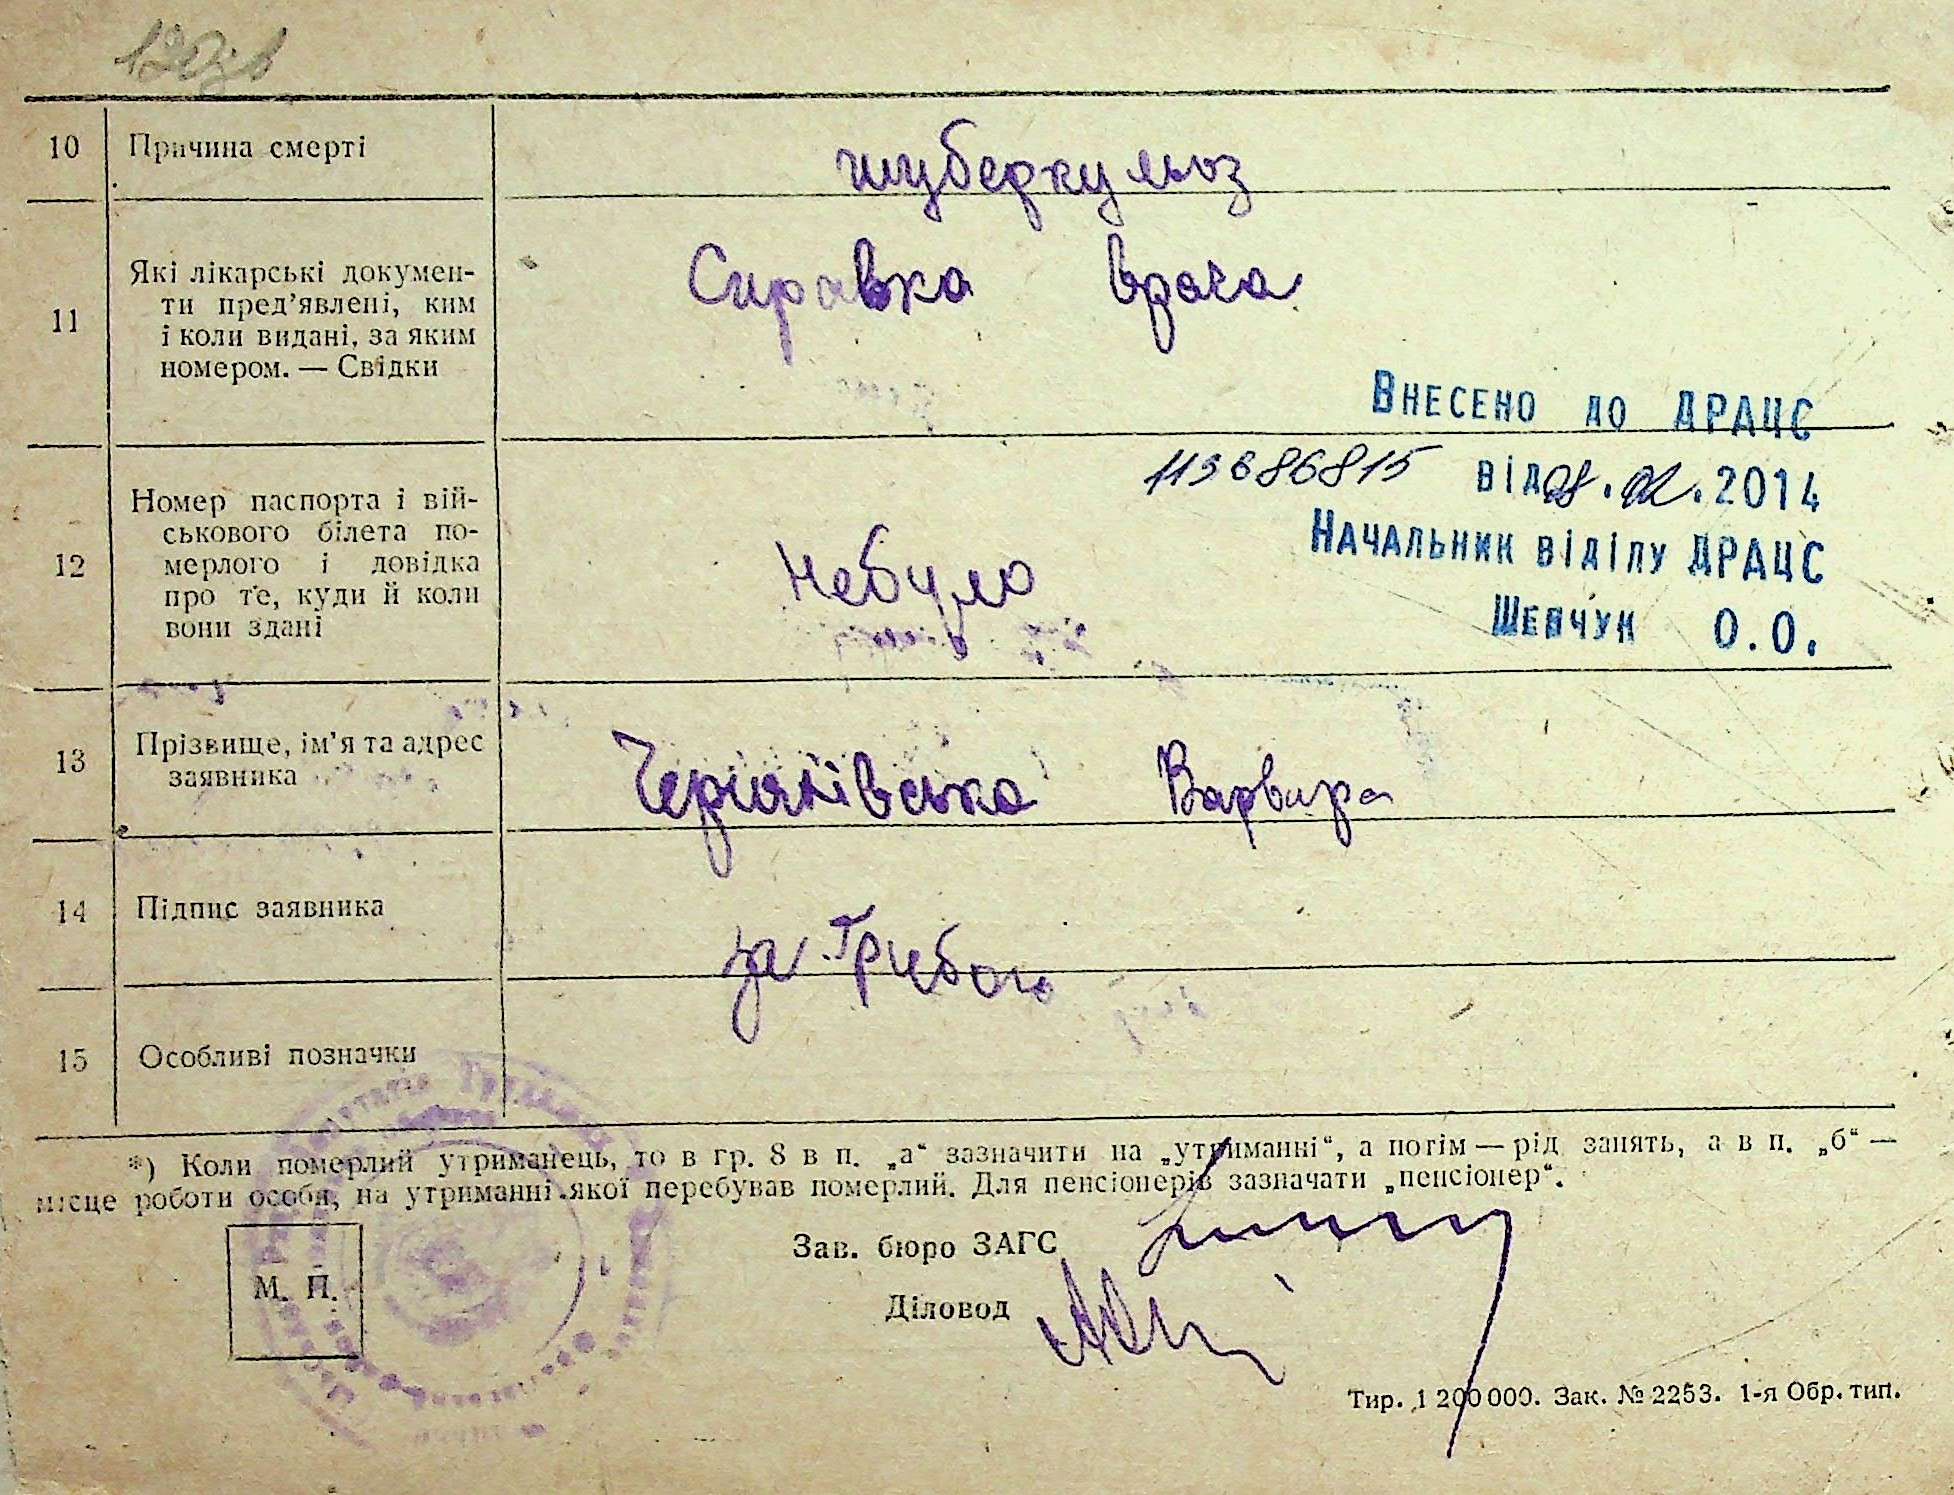 10 Причина смерті туберкульоз
11 Які лікарські докумен-
ти пред’явлені, ким
і коли видані, за яким
номером. — Свідки
Справка врача
Внесено до ДРАЦС
від 08.02.2014
Начальник відділу ДРАЦС
Шевчук О.О.
12 Номер паспорта і вій-
ськового білета по-
мерлого і довідка
про те, куди й коли
вони здані
Небуло
13 Прізвище, ім’я та адрес
заявника
Варвара
14 Підпис заявника
за
15 Особливі позначки
*) Коли померлий утриманець, то в гр. 8 в п. „а“ зазначити на „утриманні“, а потім — рід занять, а в п. „б“ —
місце роботи особи, на утриманні якої перебував померлий. Для пенсіонерів зазначати „пенсіонер“.
Зав. бюро ЗАГС
М. П.
Діловод
Тир. 1 200 000. Зак. № 2253. 1-я Обр. тип.